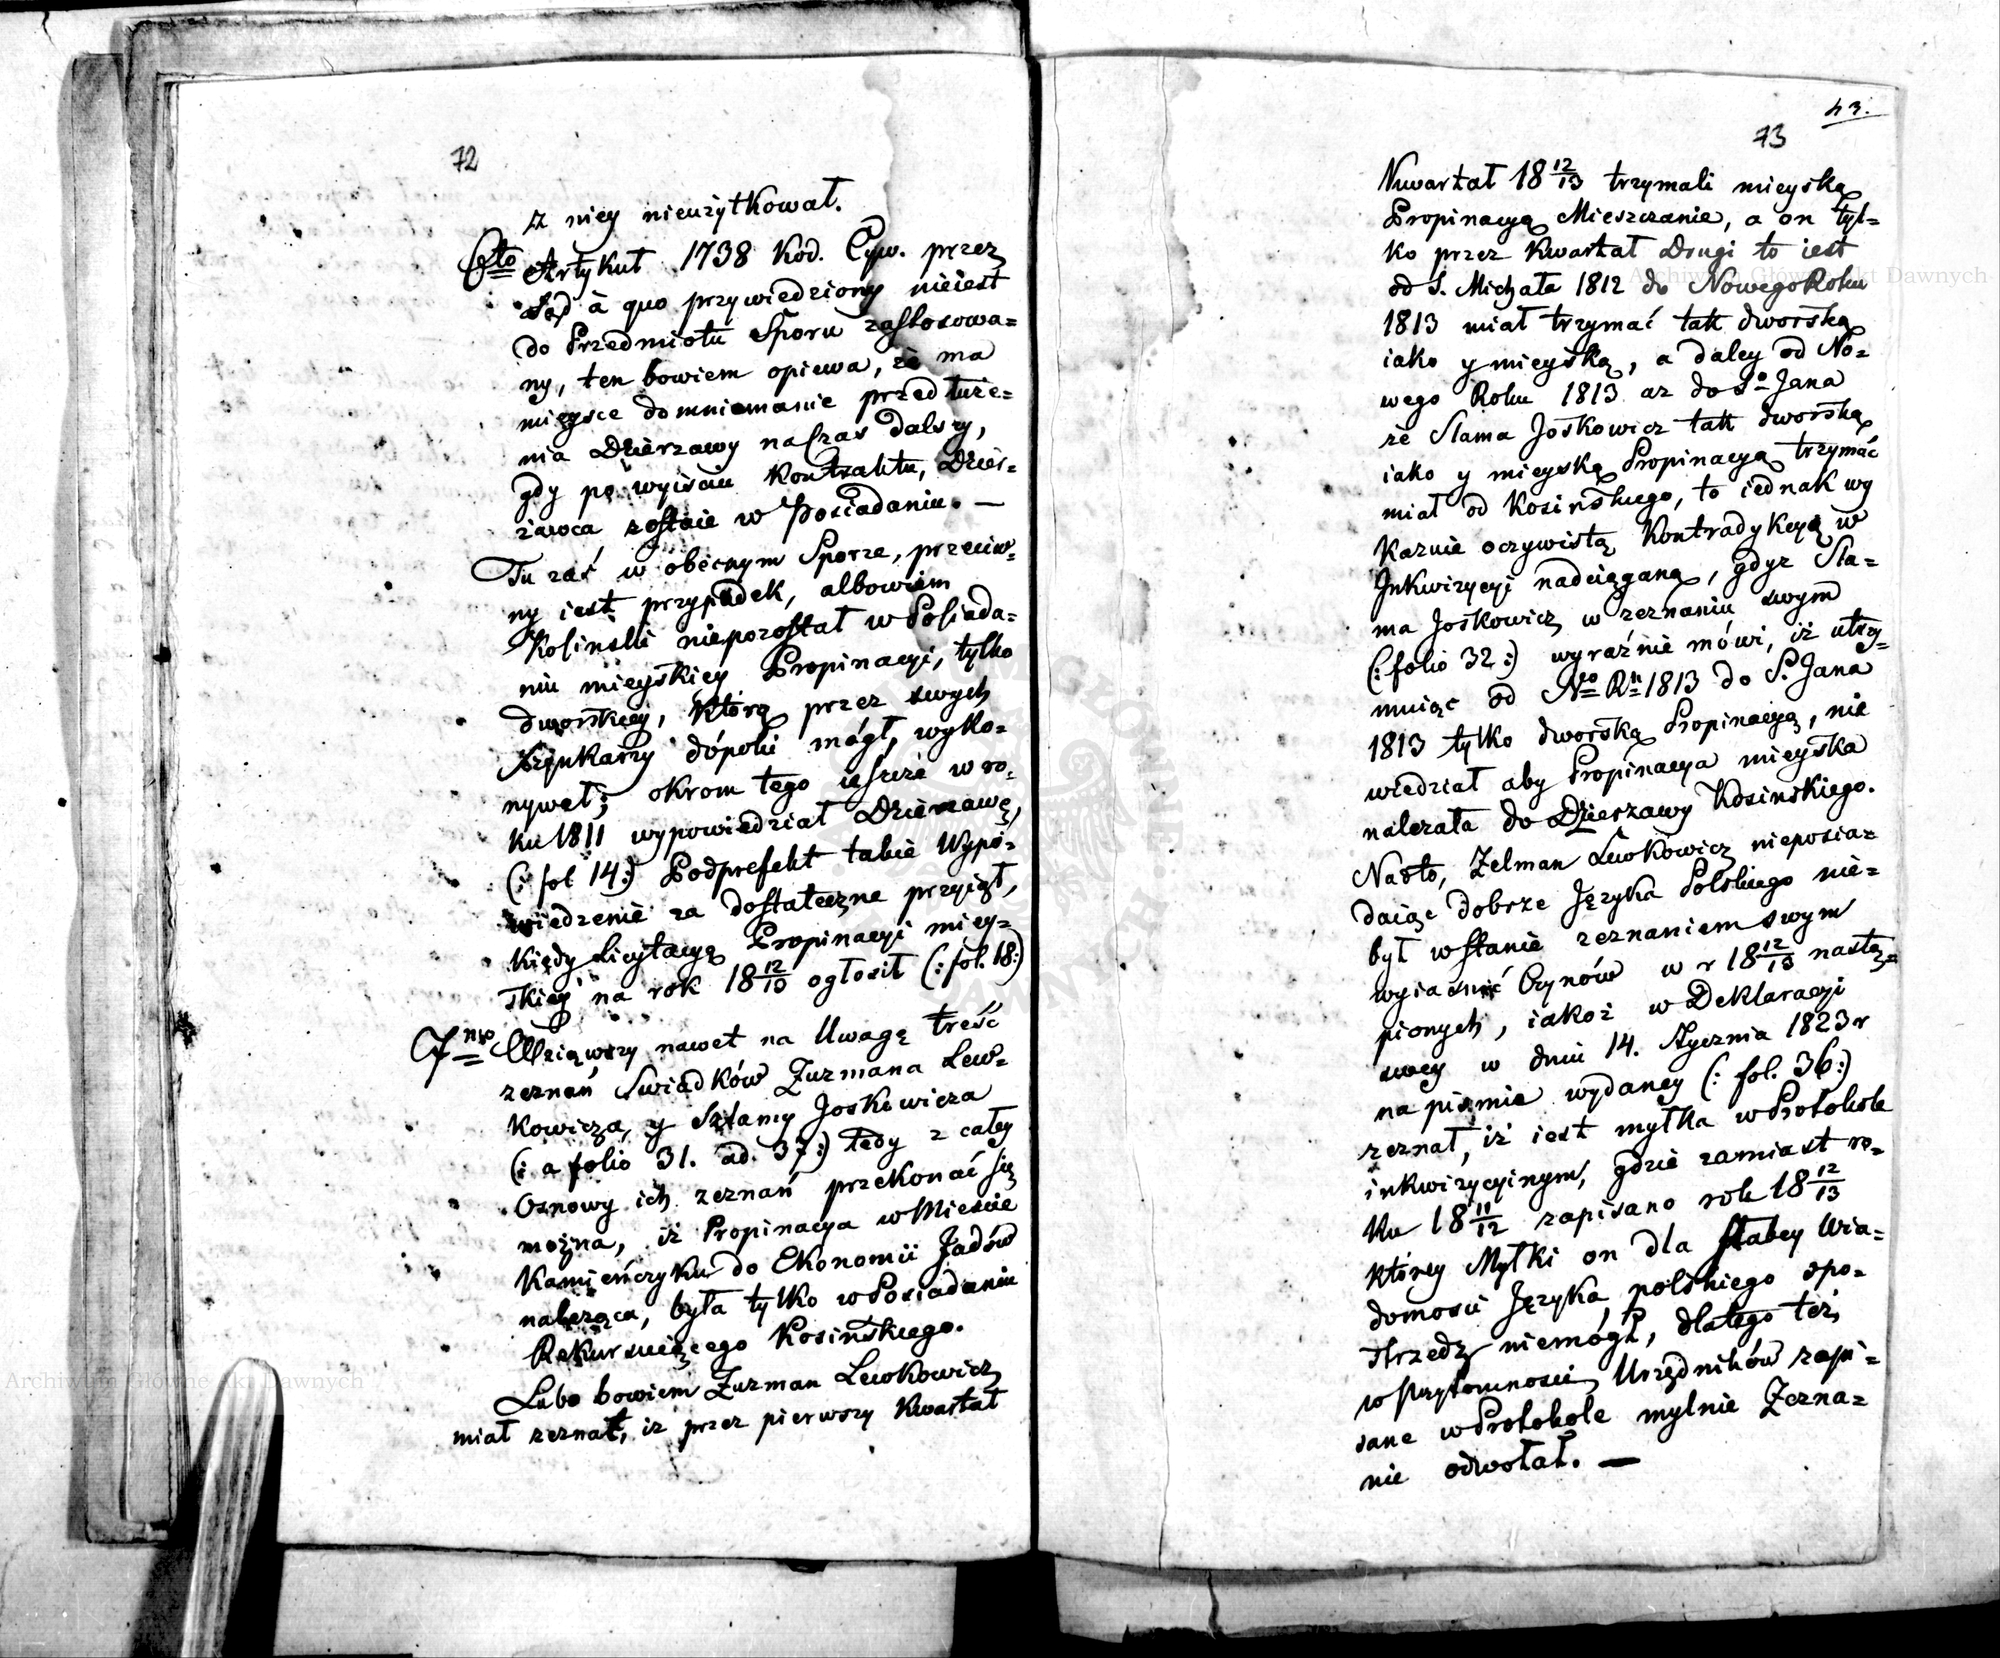 72
z niey nieużytkował.
6to Artykuł 1738 Kod. Cyw. przez
Sąd à quo przywiedziony nieiest
do Przedmiotu Sporu zastosowa=
ny, ten bowiem opiewa, że ma
mieysce domniemanie przedłuże=
nia Dzierzawy na czas dalszy,
gdy po wyiściu Kontraktu, Dzier=
żawca zostaie w Posiadaniu. —
Tu zaś w obecnym Sporze, przeciw=
ny iest przypadek, albowiem
Kosinski niepozostał w Posiada=
niu mieyskiey Propinacyi, tylko
dworskiey, którą przez swych
Szynkarzy dópoki mógł, wyko=
nywał; okrom tego ieszcze w ro=
ku 1811 wypowiedział Dzierzawę,
(: fol 14:) Podprefekt takie Wypo=
wiedzenie za dostateczne przyiął,
kiedy Licytacyą Propinacyi miey=
skiey na rok 18 12/13 ogłosił (: fol. 18:)
7mo Wziąwszy nawet na Uwagę treść
zeznań Swiadków Zuzmana Lew=
kowicza, y Szlamy Joskowicza
(: a folio 31. ad. 37:) tedy z całey
Osnowy ich zeznań przekonać się
można, iż Propinacya w Mieście
Kamieńczyku do Ekonomii Jadów
należąca, była tylko w Posiadaniu
Rekursuiącego Kosińskiego.
Lubo bowiem Zuzman Lewkowicz
miał zeznać, iz przez pierwszy Kwartał
43.
73
Kwartał 18 12/13 trzymali mieyską
Propinacyą Mieszczanie, a on tyl=
ko przez Kwartał Drugi to iest
od S. Michała 1812 do Nowego Roku
1813 miał trzymać tak dworską
iako y mieyską, a daley od No=
wego Roku 1813 aż do So Jana
że Slama Joskowicz tak dworską
iako y mieyską Propinacyą trzymać
miał od Kosińskiego, to iednak wy
kazuie oczywistą Kontradykcyą w
Inkwizycyi nadciąganą, gdyż Sla=
ma Joskowicz w zeznaniu swym
(: folio 32 :) wyraźnie mówi, iż utrzy=
muiąc od Ngo Rku 1813 do S. Jana
1813 tylko dworską Propinacyą, nie
wiedział aby Propinacya mieyska
należała do Dzierzawy Kosinskiego.
Nadto, Zelman Lewkowicz nieposia=
daiąc dobrze Języka Polskiego nie=
był w stanie zeznaniem swym
wyiaśnić Czynów w r 18 12/13 nastą=
pionych, iakoż w Deklaracyi
swey w dniu 14. Stycznia 1823 r
na pismie wydaney (: fol. 36:)
zeznał, iż iest myłka w Protokole
inkwizycyinym, gdzie zamiast ro=
ku 18 11/12 zapisano rok 18 12/13
którey Myłki on dla słabey Wia=
domosci Języka polskiego spo=
strzedz niemógł, dlatego też,
w Przytomności Urzędników zapi=
sane w Protokole mylnie Zezna=
nie odwołał. —
Archiwum Główne Akt Dawnych
Archiwum Główne Akt Dawnych